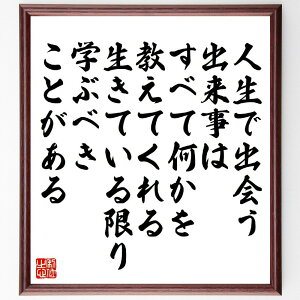 人生で出会う
出来事は
すべて何かを
教えてくれる
生きている限り
学ぶべき
ことがある